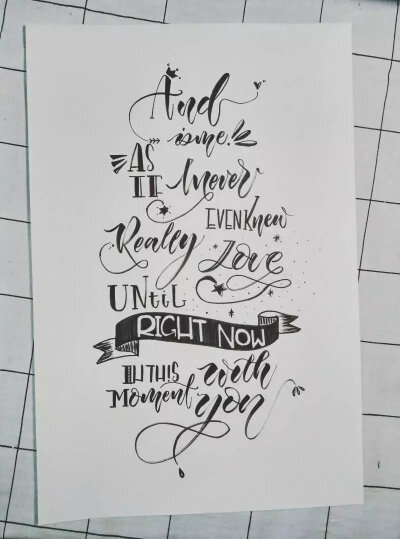 And
is me.
AS
IF I never
EVEN Knew
Really Love
UNtiL
RIGHT NOW
IN THIS with
Moment you